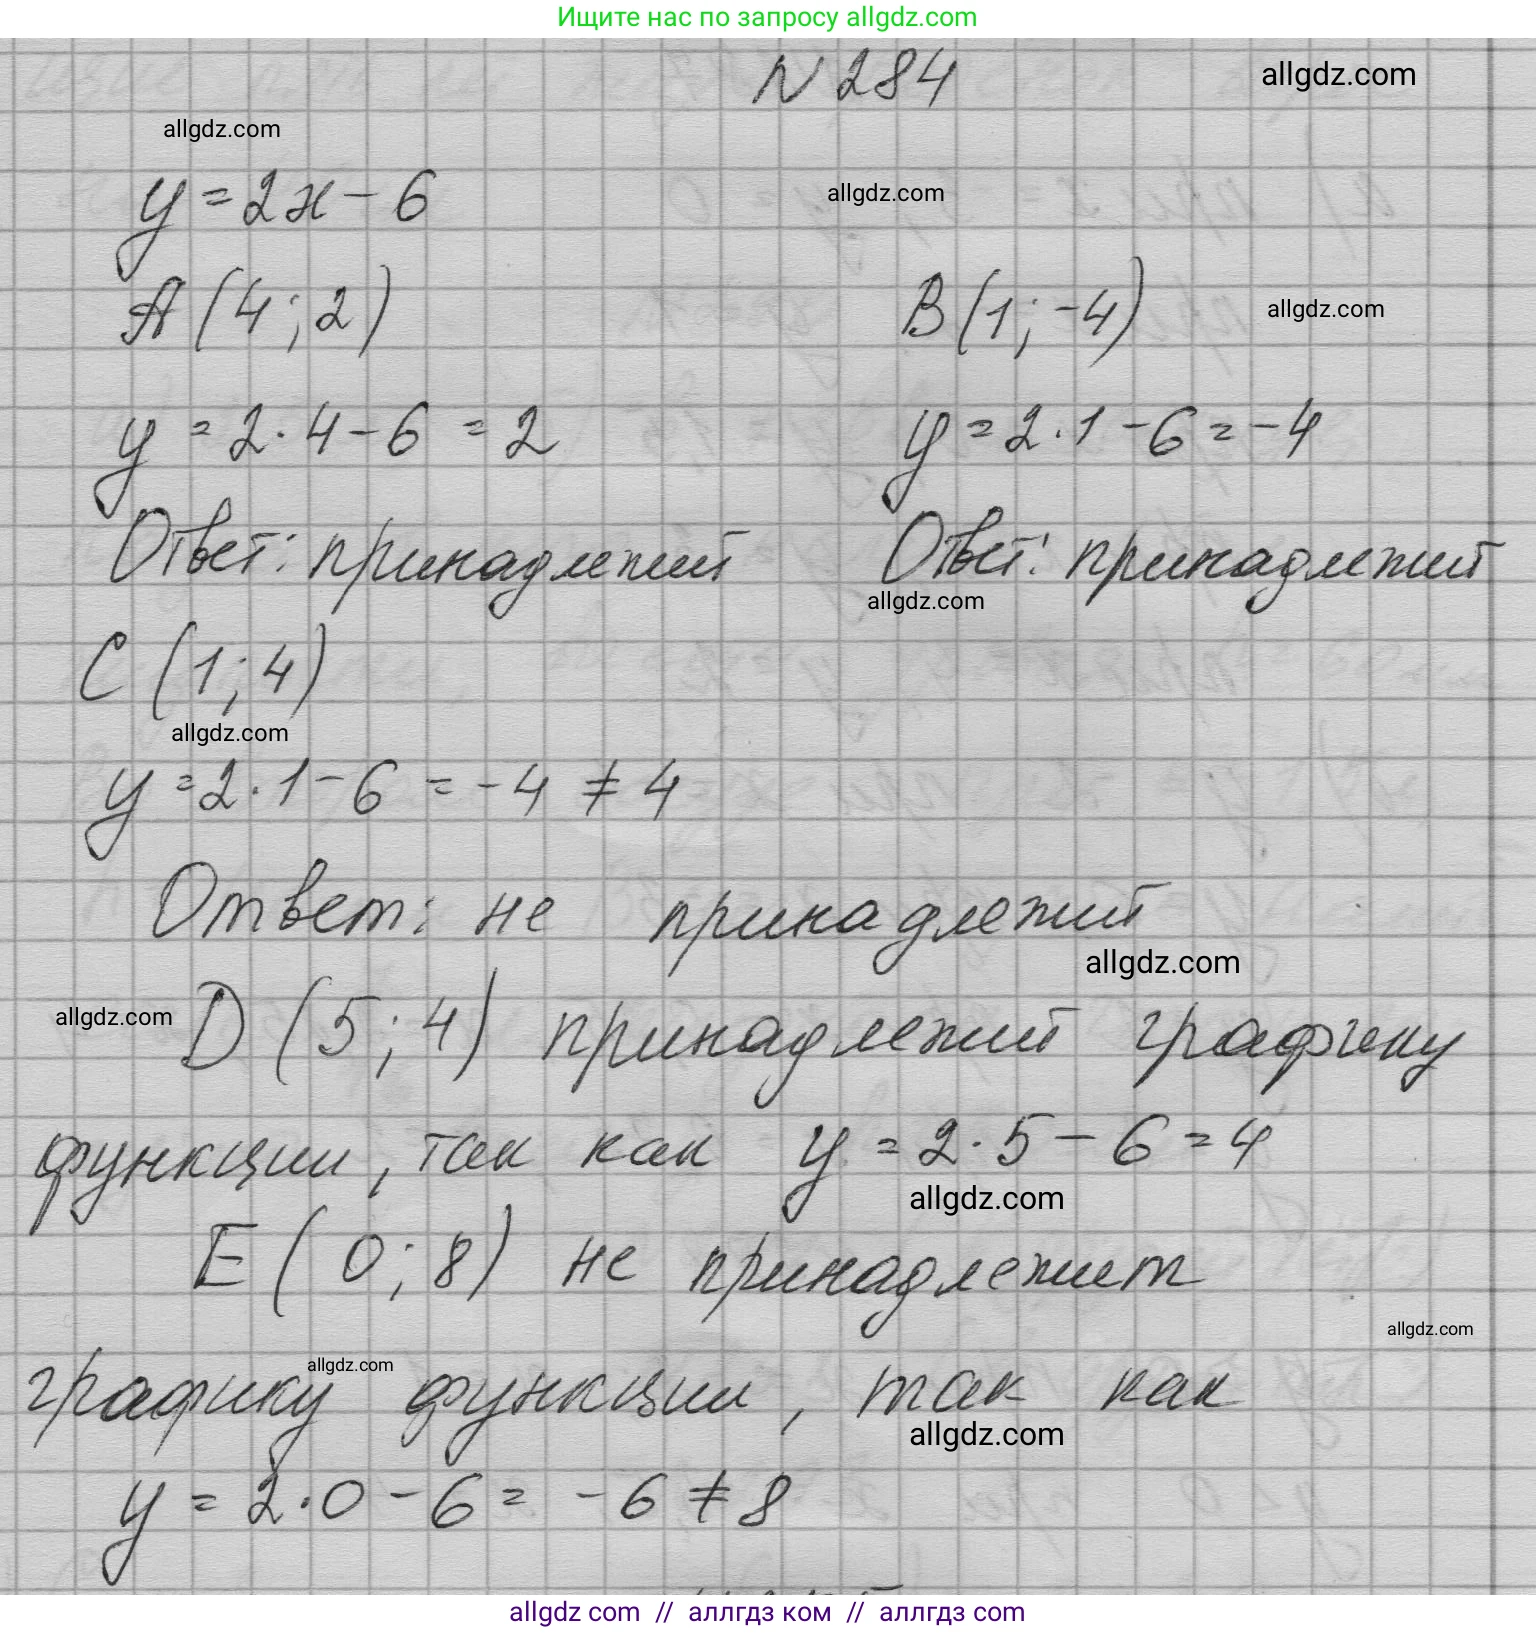 Ищите нас по запросу allgdz.com
N 284
allgdz.com
allgdz.com
y = 2x - 6
allgdz.com
A (4 ; 2)
B (1 ; -4)
allgdz.com
y = 2 · 4 - 6 = 2
y = 2 · 1 - 6 = -4
Ответ: принадлежит
Ответ: принадлежит
allgdz.com
C (1 ; 4)
allgdz.com
y = 2 · 1 - 6 = -4 ≠ 4
Ответ: не принадлежит
allgdz.com
allgdz.com
D (5 ; 4) принадлежит графику
функции, так как y = 2 · 5 - 6 = 4
allgdz.com
E (0 ; 8) не принадлежит
allgdz.com
allgdz.com
графику функции, так как
allgdz.com
y = 2 · 0 - 6 = -6 ≠ 8
allgdz com // аллгдз ком // аллгдз com